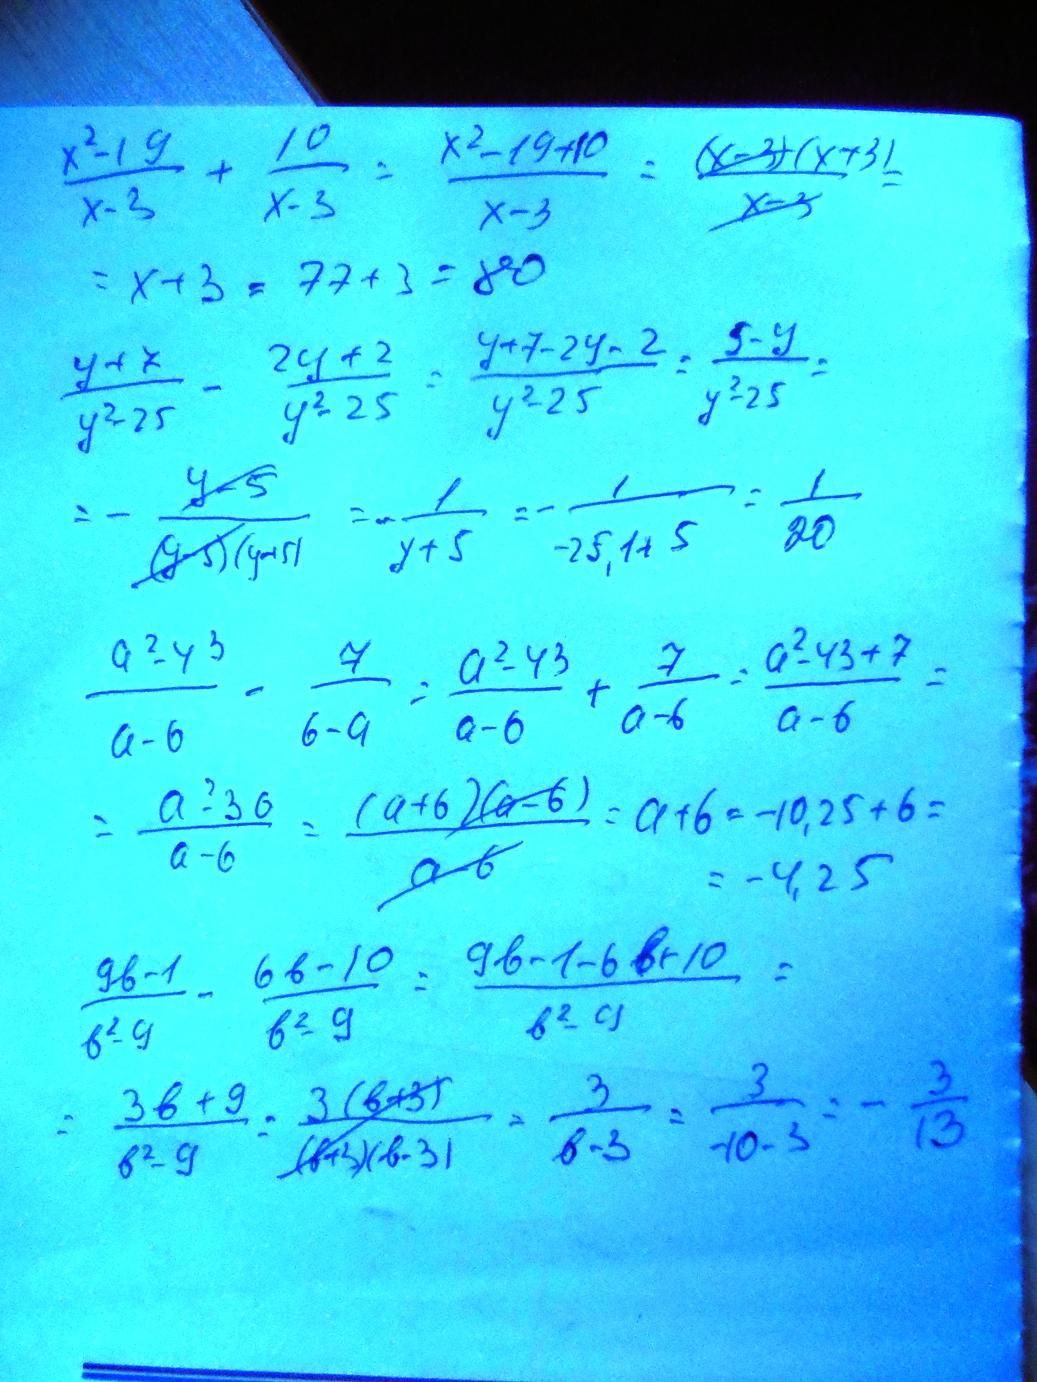 (x²-19)/(x-3) + 10/(x-3) = (x²-19+10)/(x-3) = ((x-3)(x+3))/(x-3) =
= x+3 = 77+3 = 80
(y+7)/(y²-25) - (2y+2)/(y²-25) = (y+7-2y-2)/(y²-25) = (5-y)/(y²-25) =
= - (y-5)/((y-5)(y+5)) = - 1/(y+5) = - 1/(-25,1+5) = 1/20
(a²-43)/(a-6) - 7/(6-a) = (a²-43)/(a-6) + 7/(a-6) = (a²-43+7)/(a-6) =
= (a²-36)/(a-6) = ((a+6)(a-6))/(a-6) = a+6 = -10,25+6 =
= -4,25
(9b-1)/(b²-9) - (6b-10)/(b²-9) = (9b-1-6b+10)/(b²-9) =
= (3b+9)/(b²-9) = (3(b+3))/((b+3)(b-3)) = 3/(b-3) = 3/(-10-3) = - 3/13